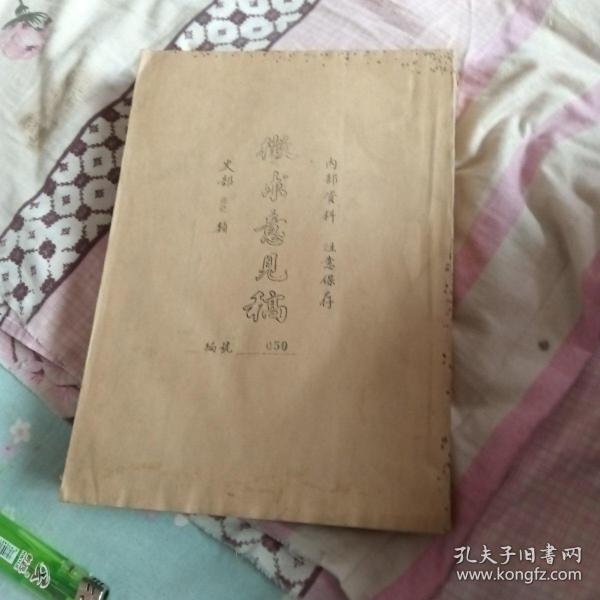 内部資料 注意保存
徵求意見稿
史部 類
編號 050
孔夫子旧书网
www.kongfz.com